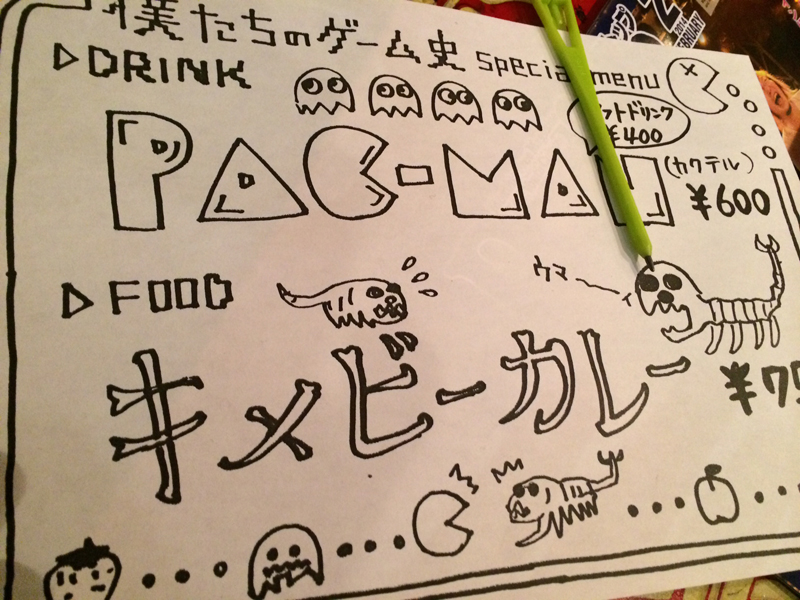 僕たちのゲーム史 special menu
▷DRINK
PAC-MAN (カクテル) ¥600
トドリンク
¥400
▷FOOD
ウマー
キメビーカレー